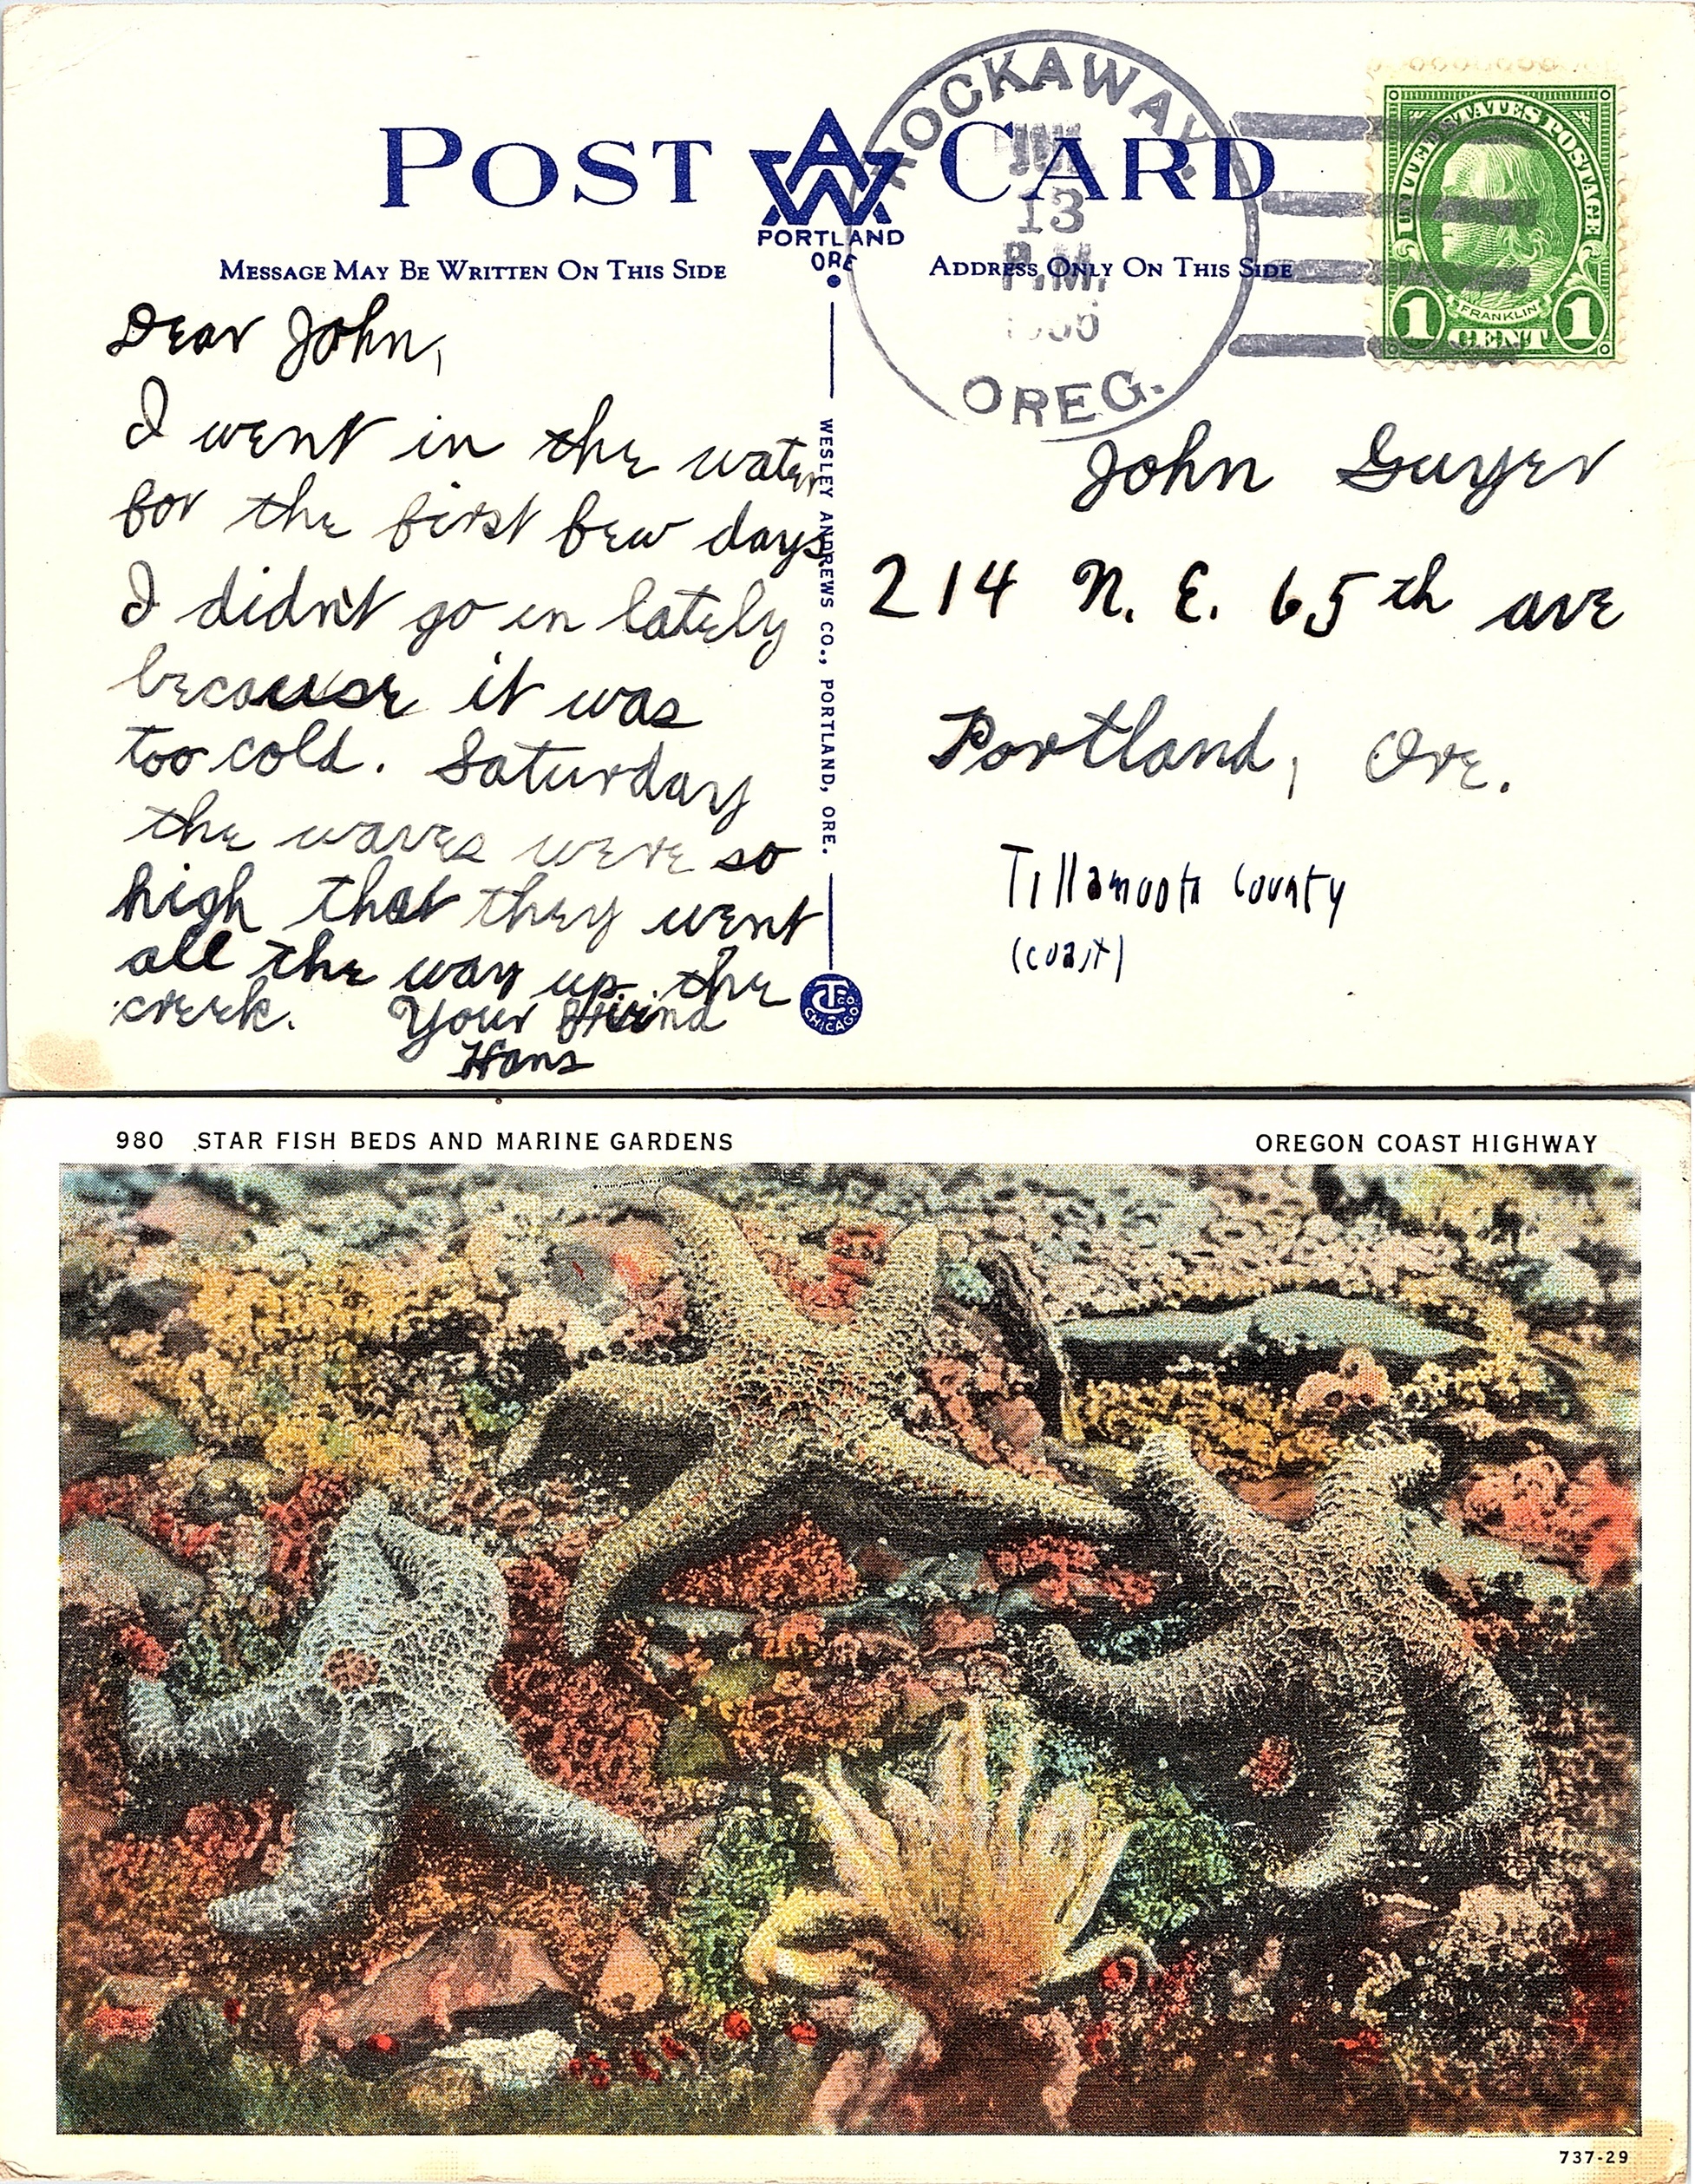 POST CARD
PORTLAND
ORE
MESSAGE MAY BE WRITTEN ON THIS SIDE
ADDRESS ONLY ON THIS SIDE
ROCKAWAY.
13
P.M.
OREG.
UNITED STATES POSTAGE
FRANKLIN
1 CENT 1
Dear John,
I went in the water
for the first few days
I didn't go in lately
because it was
too cold. Saturday
the waves were so
high that they went
all the way up the
creek. Your friend
Hans
WESLEY ANDREWS CO., PORTLAND, ORE.
CT CO.
CHICAGO
John Guyer
214 N. E. 65th ave
Portland, Ore.
Tillamook County
(coast)
980 STAR FISH BEDS AND MARINE GARDENS
OREGON COAST HIGHWAY
737-29